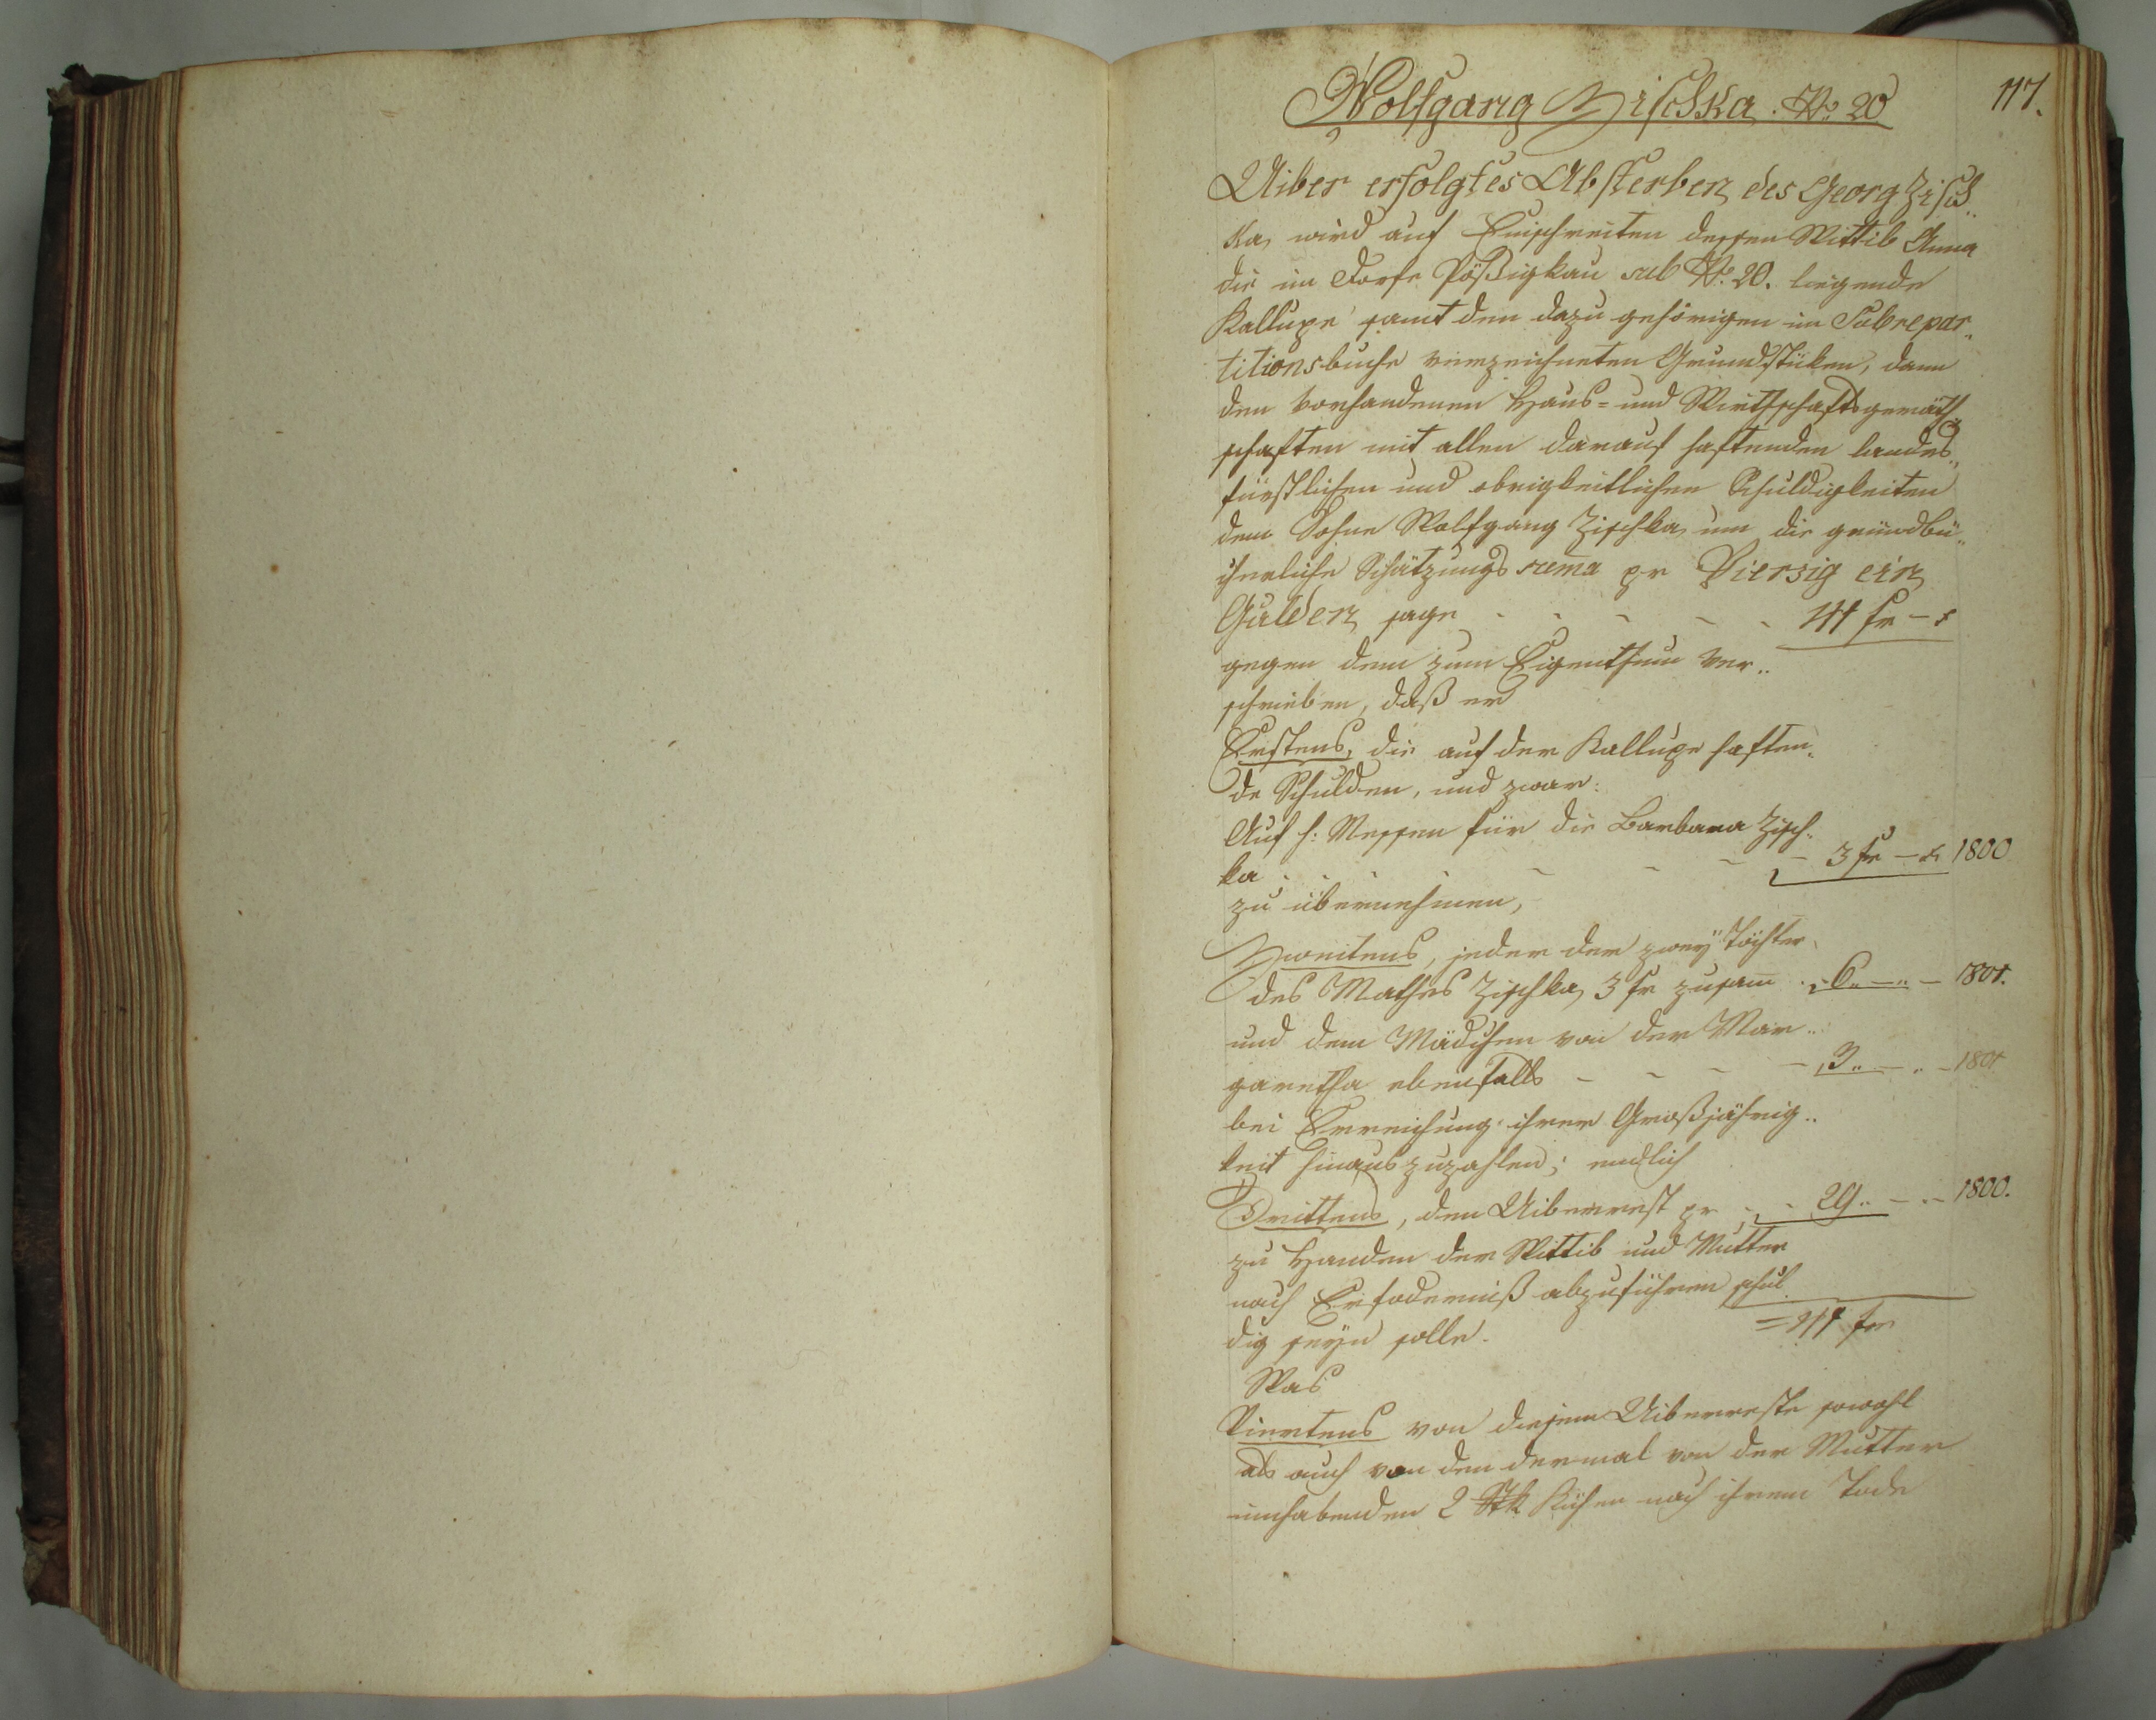 117.
Wolfgang Zischka. No 20
Uiber erfolgtes Absterben des Georg Zisch„
ka, wird auf Einschreiten dessen Wittib Anna
die im Dorfe Pößigkau sub No. 20. liegende
Kallupe samt den dazu gehörigen im Subrepar„
titionsbuche verzeichneten Grundstüken, dann
den vorhandenen Haus= und Wirthschaftsgeräth„
schaften mit allen darauf haftenden landes„
fürstlichen und obrigkeitlichen Schuldigkeiten
dem Sohne Wolfgang Zischka um die grundbü„
cherliche Schätzungs suma pr Vierzig ein
Gulden sage - - - - - 41 fr - x
gegen dem zum Eigenthum ver„
schrieben, daß er
Erstens, die auf der Kallupe haften„
de Schulden, und zwar:
Auf h. Messen für die Barbara Zisch„
ka - - - - - 3 fr - x 1800
zu übernehmen,
Zweitens, jeder der zweÿ Töchter
des Mathes Zischka, 3 fr zusam̄ . 6„ —„ — 1801.
und dem Mädchen von der Mar„
garetha ebenfalls - - - - 3„ — „ - 1801
bei Erreichung ihrer Großjährig„
keit hinauszuzahlen; endlich
Drittens, den Uiberrest pr - - 29„ - - - 1800.
zu Handen der Wittib und Mutter
nach Erfoderniß abzuführen schul„
dig seÿn solle. = 41 fr
Was
Viertens von diesem Uiberreste sowohl
als auch von den dermal von der Mutter
innhabenden 2 Stk Kühen nach ihrem Tode